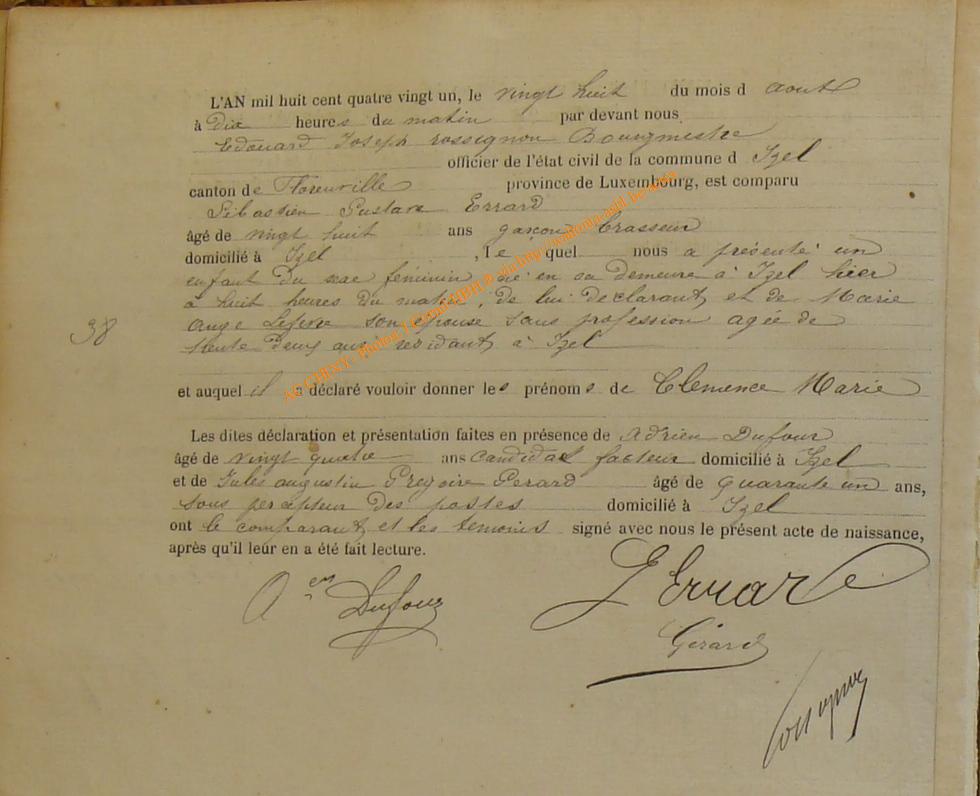 L'AN mil huit cent quatre vingt un, le vingt huit du mois d aout
à Dix heures du matin par devant nous
Edouard Joseph rossignon Bourgmestre
officier de l'état civil de la commune d Izel
canton de Florenville province de Luxembourg, est comparu
Sébastien Gustave Errard
âgé de vingt huit ans garçon brasseur
domicilié à Izel , le quel nous a présenté un
enfant du sexe féminin né en sa demeure à Izel hier
à huit heures du matin, de lui déclarant et de Marie
Ange Lefevre son épouse sans profession agée de
trente deux ans résidant à Izel
38
et auquel il a déclaré vouloir donner les prénoms de Clemence Marie
Les dites déclaration et présentation faites en présence de Adrien Dufour
âgé de vingt quatre ans candidat facteur domicilié à Izel
et de Jules augustin Grégoire Gerard âgé de quarante un ans,
sous percepteur des postes domicilié à Izel
ont le comparant et les témoins signé avec nous le présent acte de naissance,
après qu'il leur en a été fait lecture.
A Dufour
Errard
Gérard
rossignon